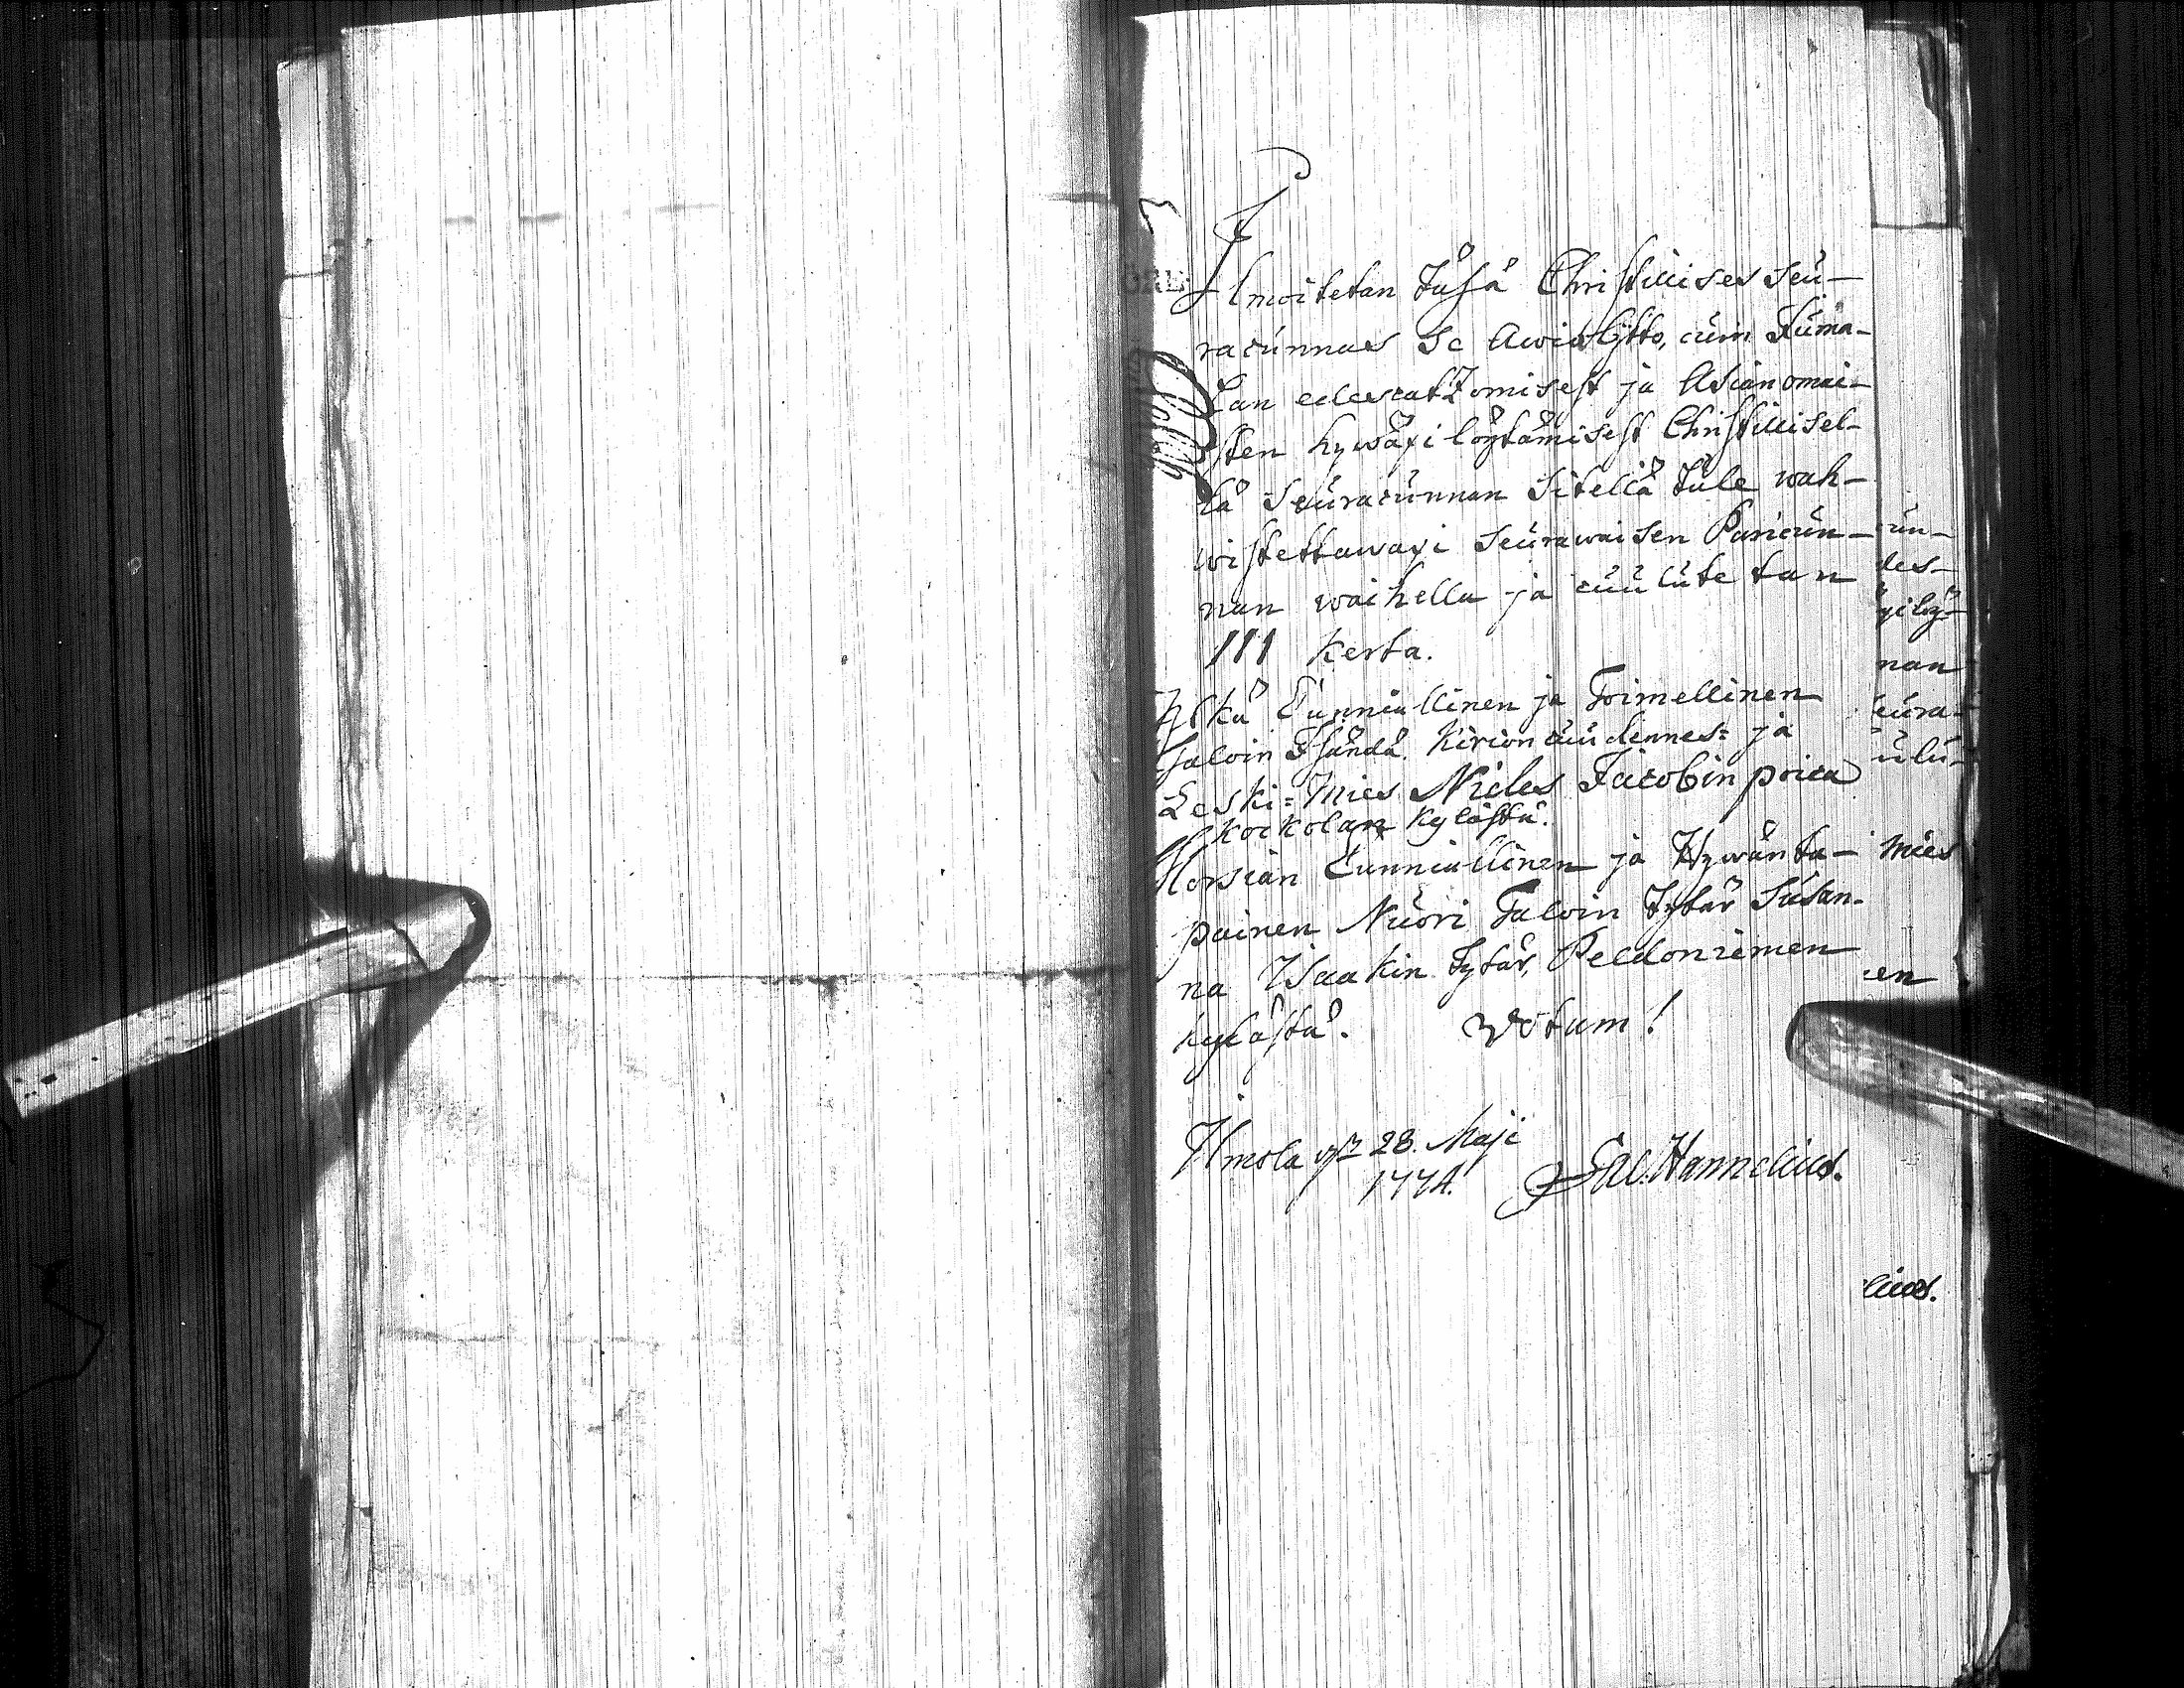 Ilmoitetan täsä Christillises Seu-
racunnas se Awioliitto, cuin Juma-
lan edescatzomisest ja Asianomai-
sten hywäxi löytämisest Christilisel-
lä Seuracunnan sitellä tule wah-
wistettawaxi seurawaisen Paricun-
nan waihella ja cuulutetan
III Kerta.
Ylkä Cunniallinen ja Toimellinen
Taloin Isändä. Kirion cuudennes= ja
Leski=Mies Niclas Jacobin poica
Kockolan kylästä.
Morsian Cunniallinen ja Hywänta-
painen Nuori Taloin Tytär Susan-
na Isaakin Tytär, Peldoniemen
kylästä. Votum!
Ilmola 28. Maji
1774. Hannelius.
cun-
des-
xilöy-
nan
eura-
ulu-
Mies
en
elius.